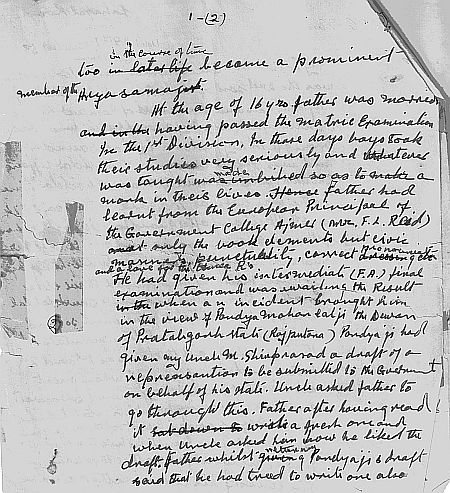 1-(2)
in the course of time
too in later life became a prominent
member of the Arya samajist.
At the age of 16 yrs father was married
and in the having passed the Matric Examination
In the 1st Division. In those days boys took
their studies very seriously and whatever
was taught was imbibed so as to make a
mark in their lives. Hence Father had
learnt from the European Principal of
the Government College Ajmer (Mr. F. L. Reid)
not only the book but civic
manners, punctuality, correct pronunciation
and a love for the three R's
He had given his intermediate (F.A.) final
examination and was waiting the Result
in the when an incident brought him
in the view of Pandya Mohan Lalji the Dewan
of Pratabgarh State (Rajputana) Pandyaji had
given my Uncle M. Shivprasad a draft of a
representation to be submitted to the Government
on behalf of his state. Uncle asked father to
go through this. Father after having read
it sat down to write a fresh one and
when Uncle asked him how he liked the
draft, father whilst returning Pandyaji's draft
said that he had tried to write one also